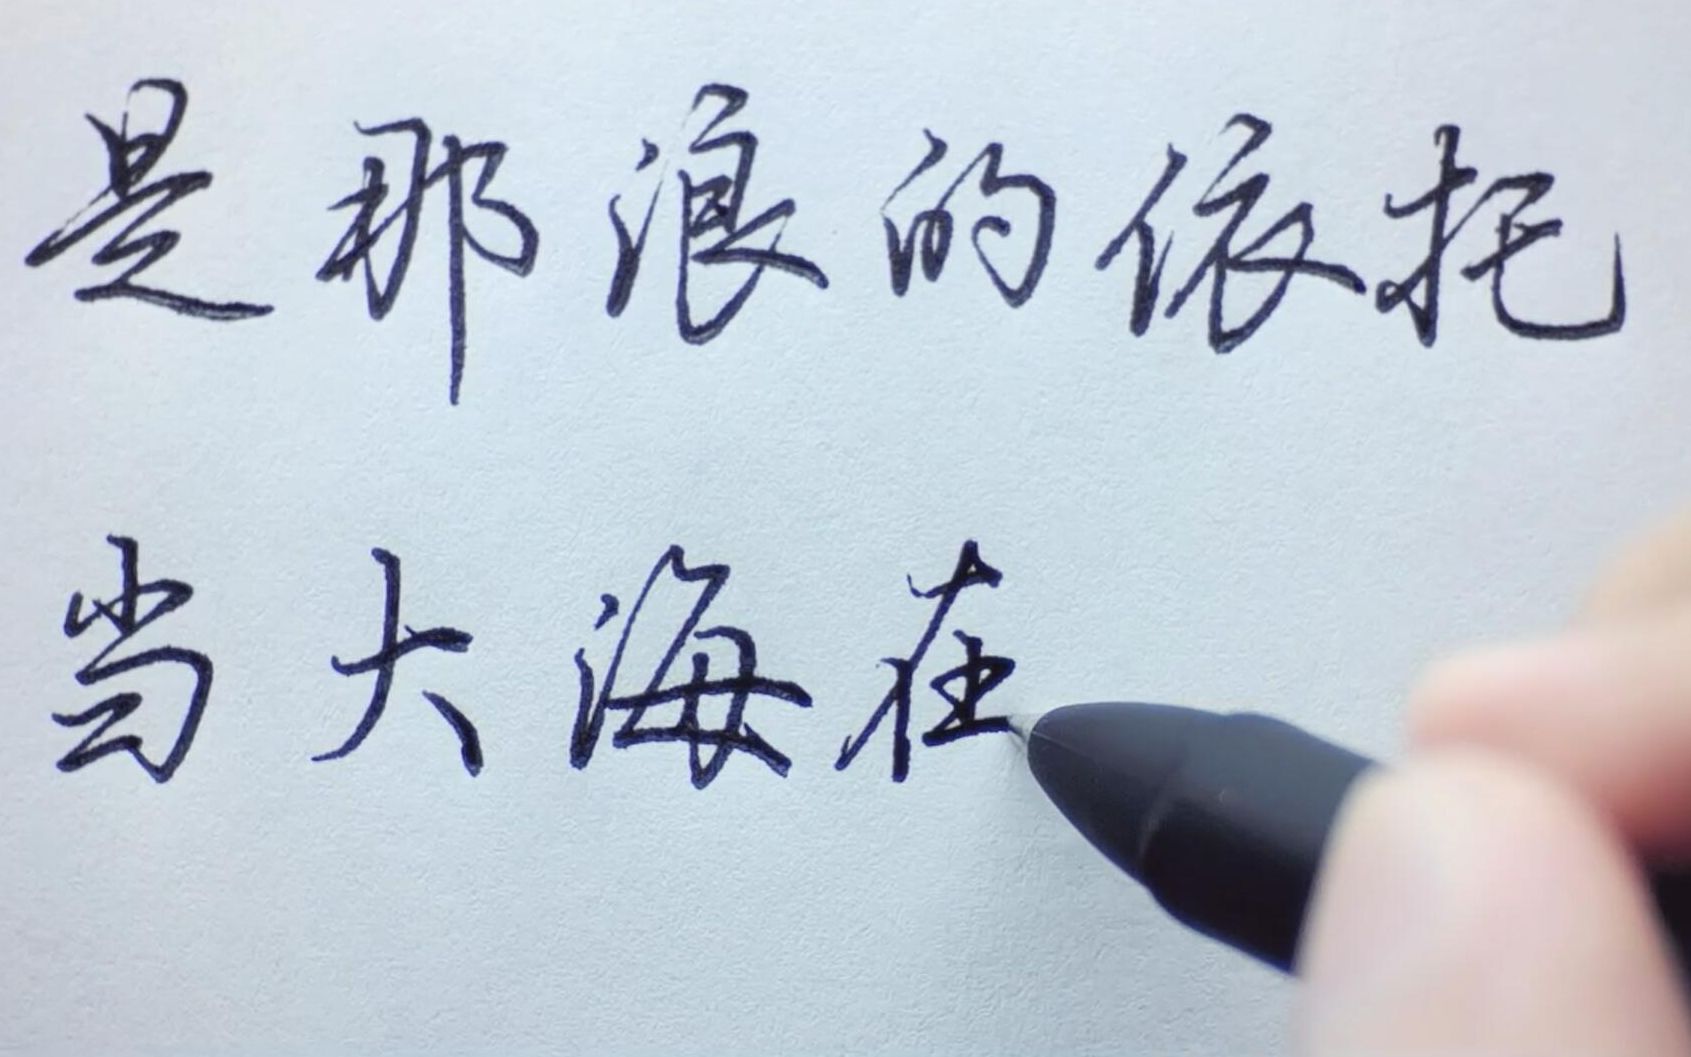 是那浪的依托
当大海在